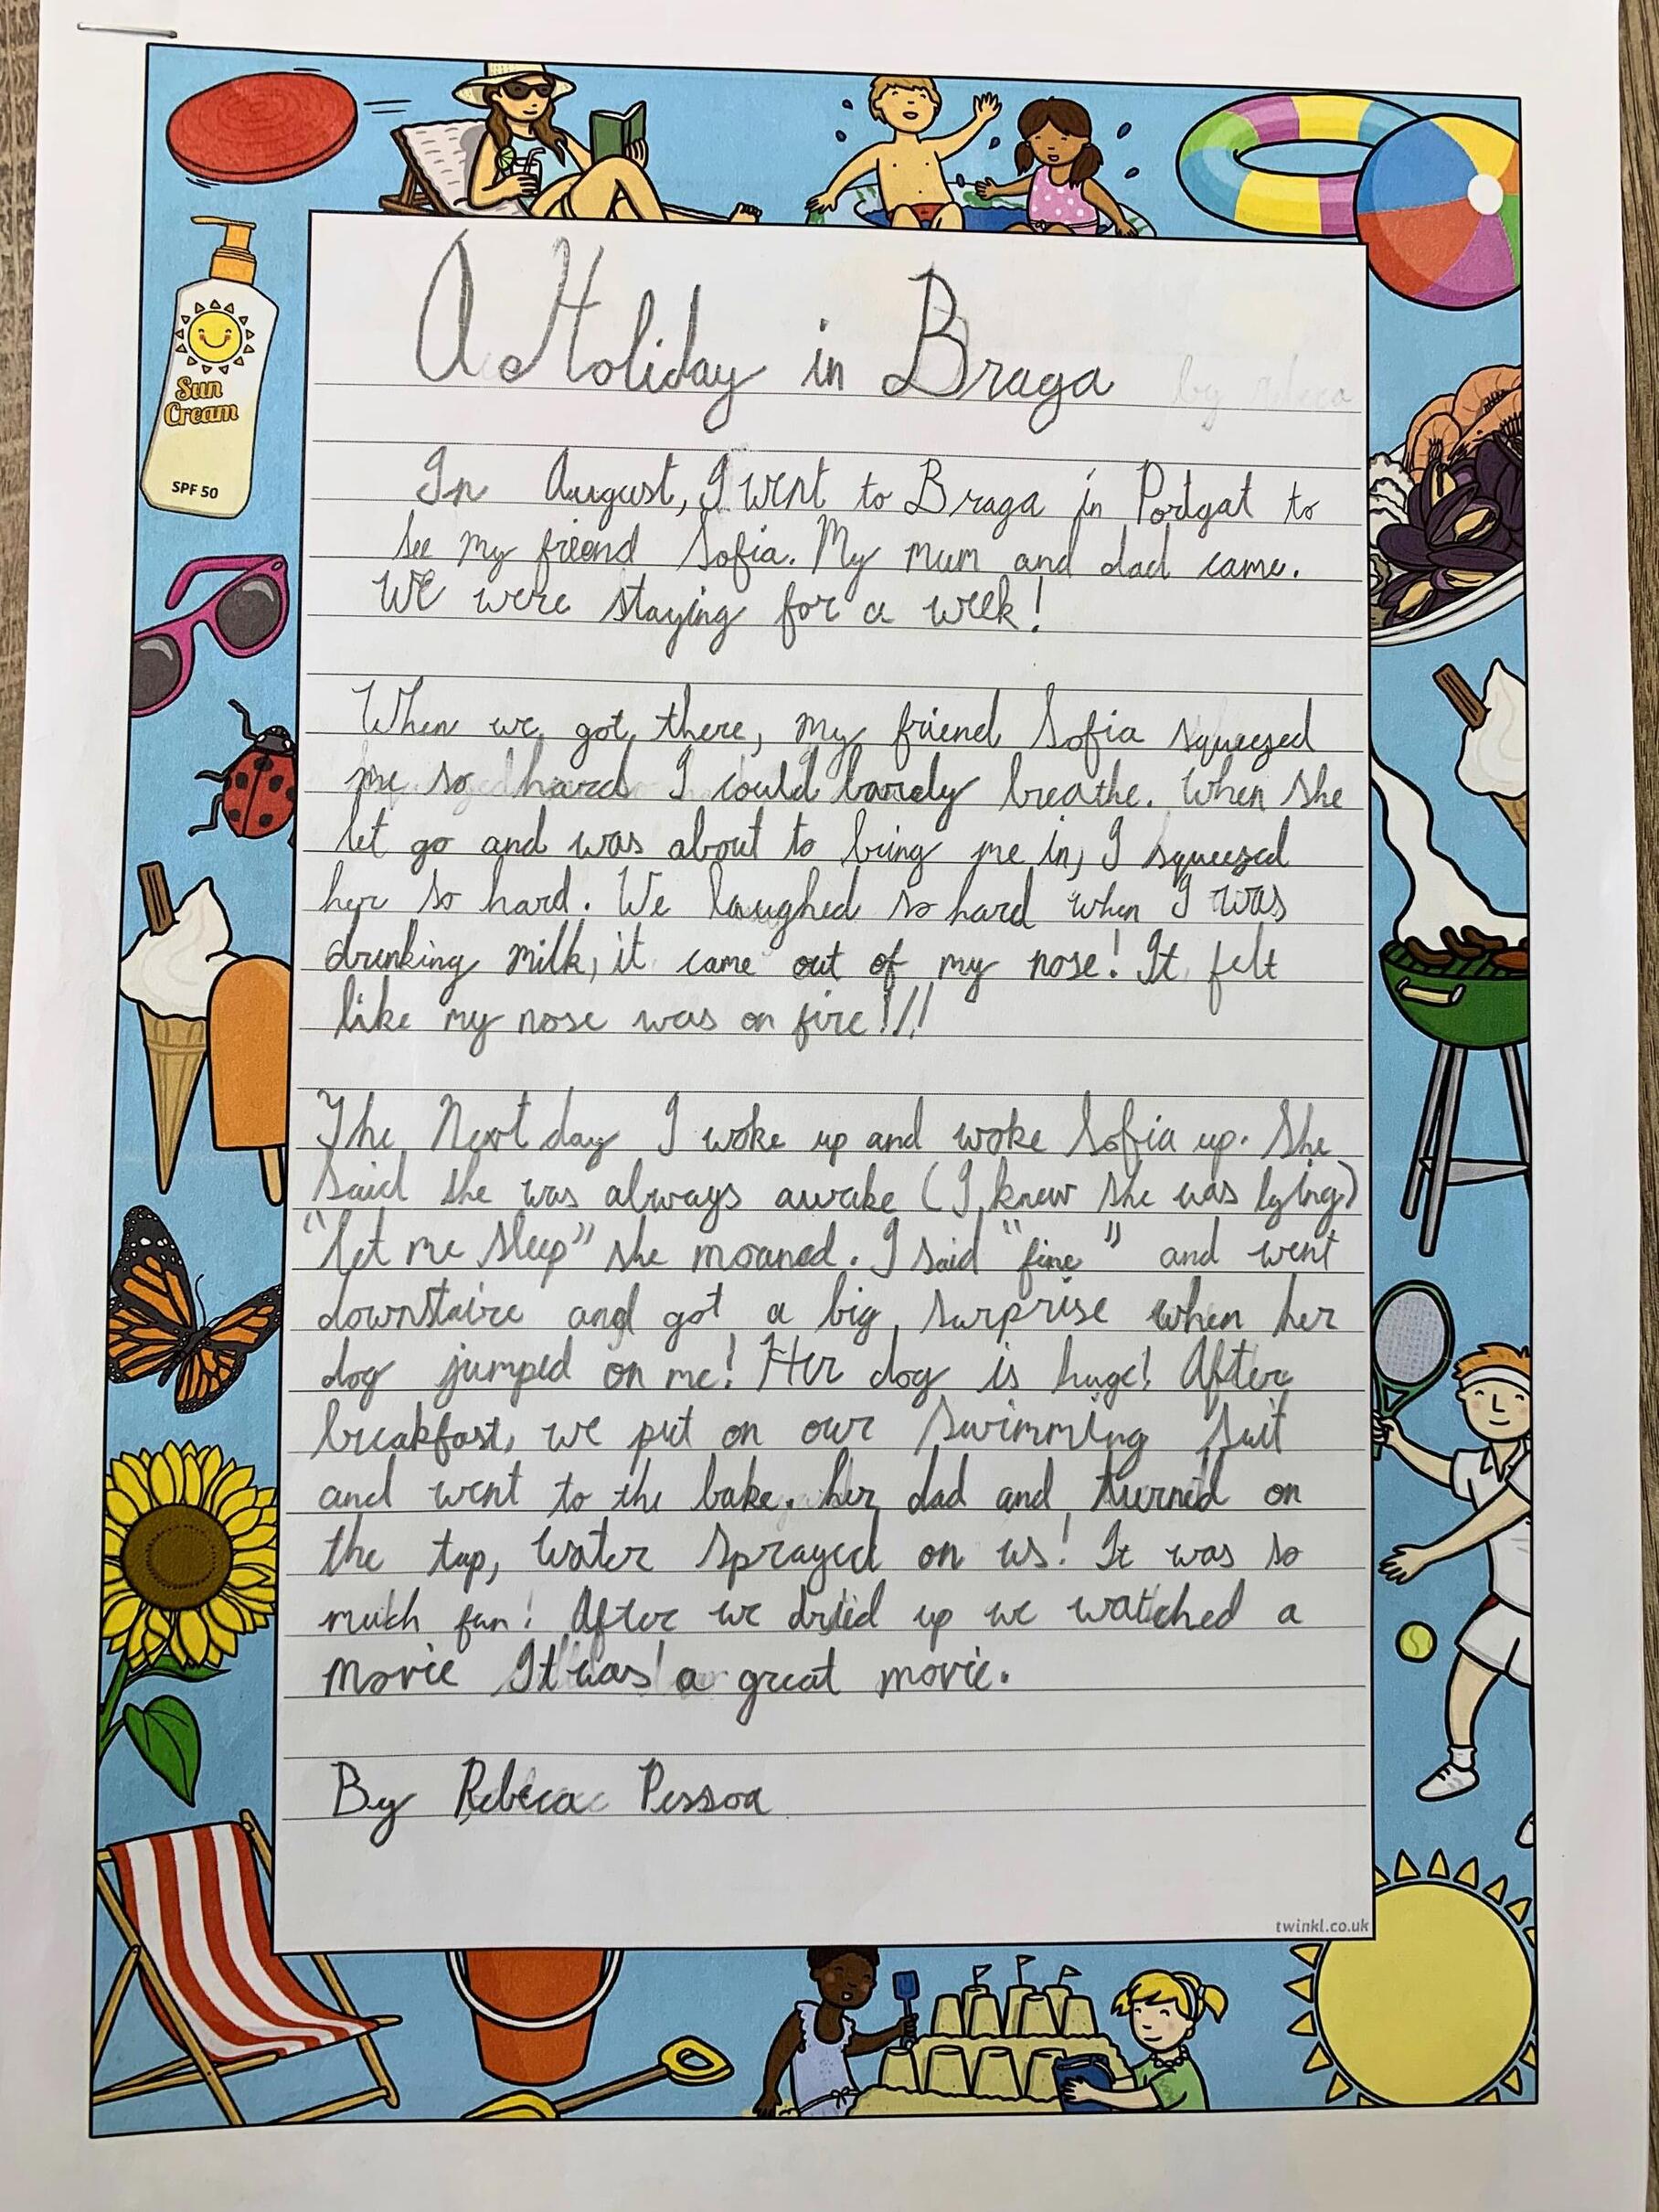 Sun
Cream
SPF 50
A Holiday in Braga
by rebeca
In August, I went to Braga in Portgat to
see my freend Sofia. My mum and dad came.
We were staying for a week!
When we got there, my friend Sofia squeezed
me so hard I could barely breathe. When she
let go and was about to bring me in, I squeezed
her so hard. We laughed so hard when I was
drinking milk, it came out of my nose! It felt
like my nose was on fire!!!
The Next day I woke up and woke Sofia up. She
said she was always awake (I knew she was lying)
"let me sleep" she moaned. I said "fine" and went
downstaire and got a big surprise when her
dog jumped on me! Her dog is huge! After
breakfast, we put on our swimming suit
and went to the bake. her dad and turned on
the tap, water sprayed on us! It was so
much fun! After we dried up we watched a
movie It was a great movie.
By Rebeca Pessoa
twinkl.co.uk